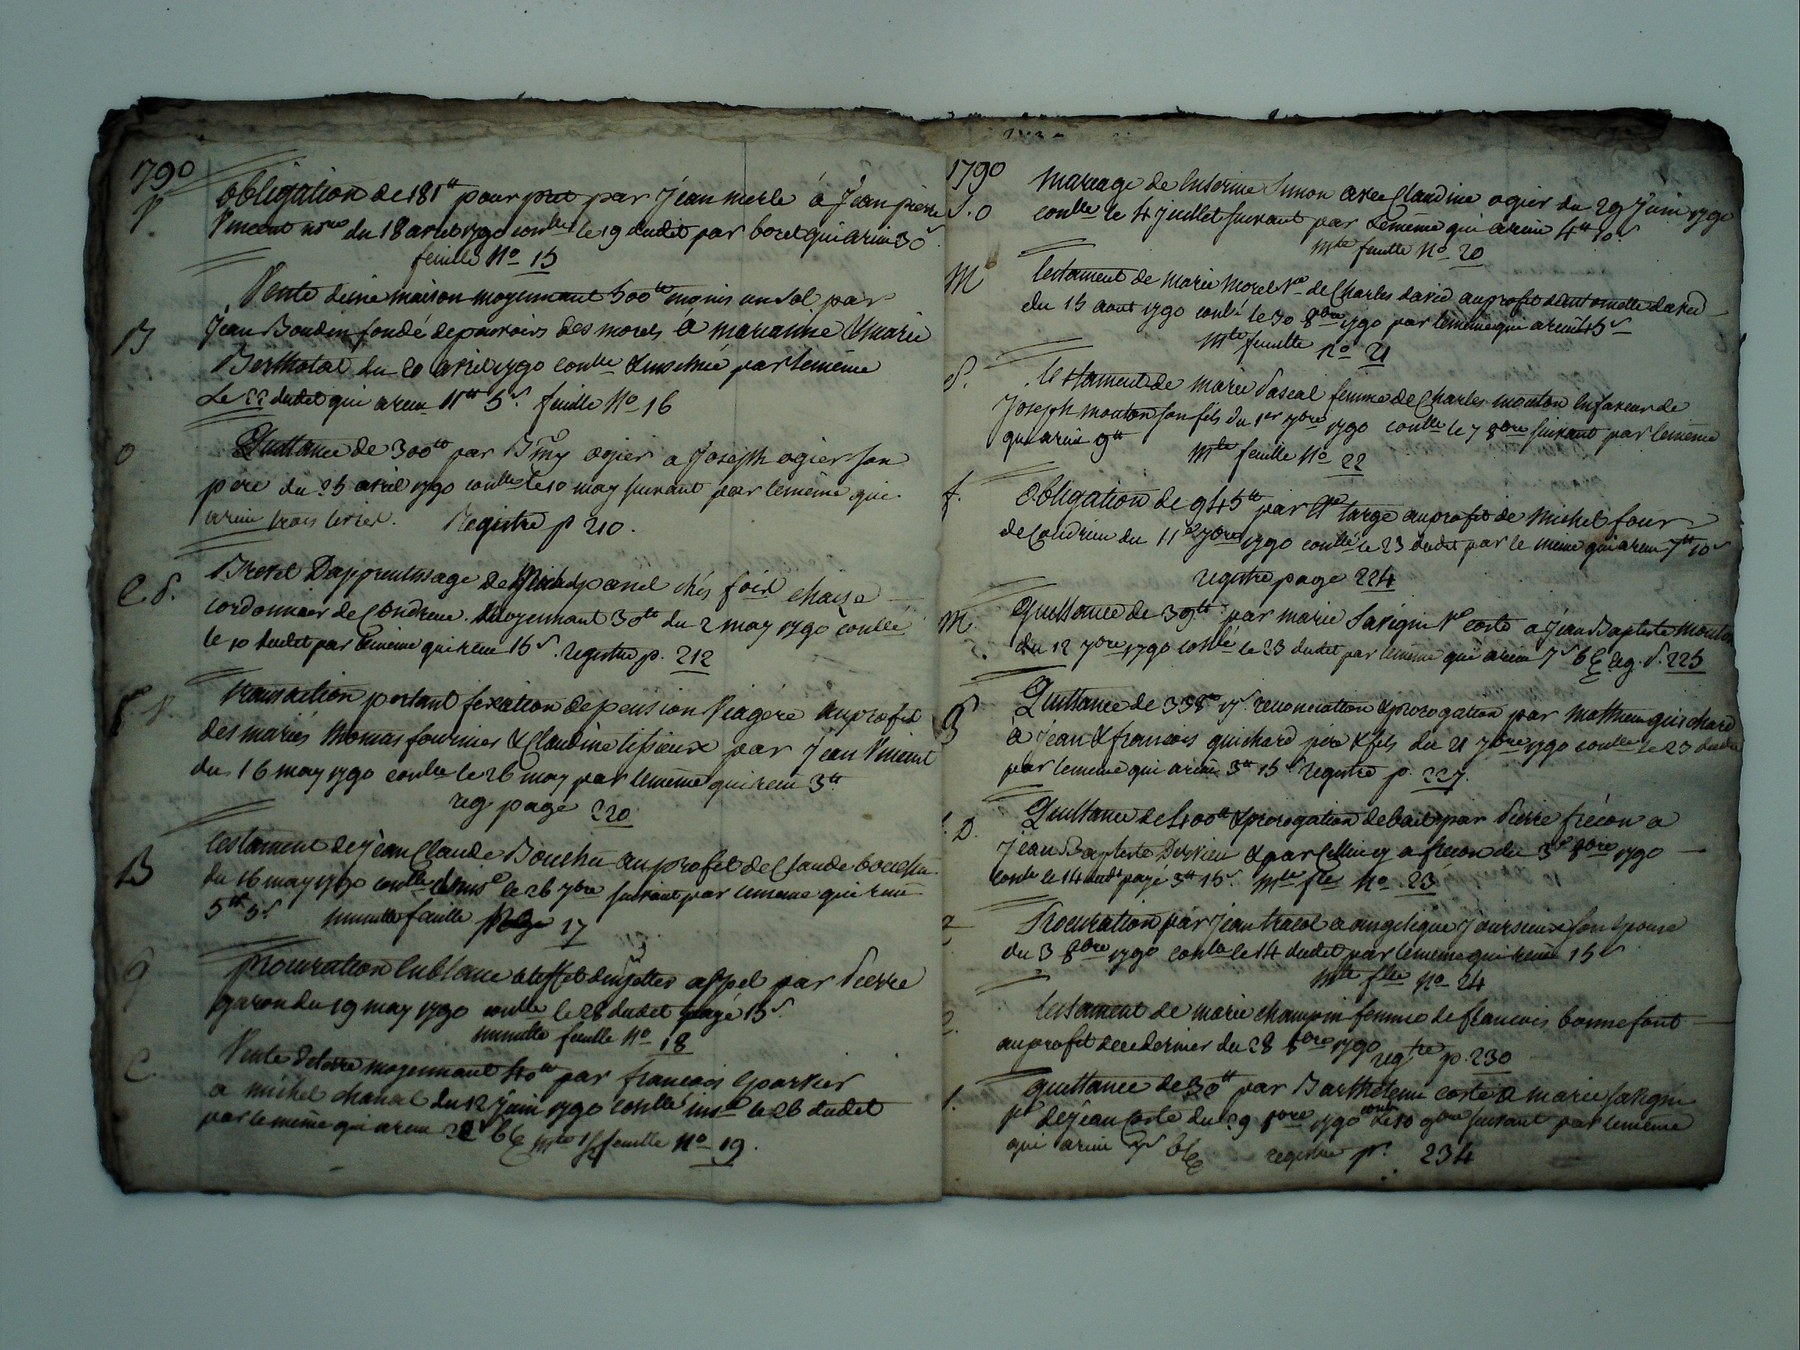 1790
V. obligation de 181tt pour pret par Jean merle à Jean pierre
Vincent du 18 avril 1790 conllé le 19 dudit par boret qui a recu 30s
feuille No 15
Vente deine maison moyennant 500tt moins un sol par
B Jean Boudin fondé de pouvoirs des morel à marianne & marie
Bertholat du 20 avril 1790 contllé & insinué par lemême
Le 22 dudit qui a recu 11tt 5s feuille No 16
O Quittance de 300tt par ogier a Joseph ogier son
pere du 25 avril 1790 contllé le 10 may suivant par lemême qui
a recu trois Registre p 210.
C. P. Brevet Dapprentissage de chés chaise
cordonnier de Condrieu moyennant 30tt du 2 may 1790 contllé
le 10 dudit par lemême qui recu 15s. registre p. 212
F V. transaction portant fixation de pension Viagere au profit
des mariés thomas fournier & Claudine par Jean Vincent
du 16 may 1790 contllé le 26 may par lemême qui recu 3tt
reg page 220
B testament de jean Claude Bouchu au profit de Claude bouchu
du 16 may 1790 contllé & insé le 26 7bre suivant par lemême qui recu
5tt 5s minutte feuille 17
g procuration en blanc a leffet appel par Pierre
garon du 19 may 1790 contllé le 28 dudit payé 15s
minutte feuille No 18
C Vente de terre moyennant 40tt par francois
a michel chanal du 12 Juin 1790 contllé insé le 26 dudit
par le même qui a recu mte 1/2 feuille No 19.
1790 mariage de Simon avec Claudine ogier du 29 Juin 1790
S. O contllé le 4 juillet suivant par Lemême qui a recu 4tt 10s
mte feuille No 20
M testament de marie Morel Ve de Charles david au profit dantoinette david
du 15 aout 1790 contlé le 30 8bre 1790 par lemême qui a recu 45s
mte feuille no 21
P. testament de marie Pascal femme de Charles mouton en faveur de
Joseph mouton son fils du 1er 7bre 1790 contllé le 7 8bre suivant par lemême
qui a recu 9tt mte feuille No 22
f. Obligation de 945tt par targe au profit de Michel four
de Condrieu du 11 7bre 1790 contllé le 23 dudit par le meme qui a recu 7tt 10s
registre page 224
M. Quittance de 39tt par marie Savigni Ve coste a Jean Baptiste mouton
du 12 7bre 1790 contllé le 23 dudit par lemême qui a recu 7s reg. P. 225
G Quittance de renonciation & prorogation par Mathieu guichard
à Jean & francois guichard père & fils du 21 7bre 1790 contllé le 23 dudit
par lemême qui a recu 3tt 15s registre p. 227.
D. Quittance de 400tt & prorogation de bail par Pierre frécon a
Jean Baptiste & par a frecon du 3 8bre 1790
contllé le 14 dudt payé 3tt 15s. mte flle No 23
Procuration par jean tracol a angelique Joursieux son Epouse
du 3 8bre 1790 contllé le 14 dudit par lemême qui recu 15s
mte flle no 24
testament de marie champin femme de francois bonnefont
au profit de ce dernier du 28 8bre 1790 regtre p. 230
quittance de 30tt par Barthelemi coste a marie Savigni
de jean Coste du 29 8bre 1790 contllé le 10 9bre suivant par lemême
qui a recu registre pe. 234